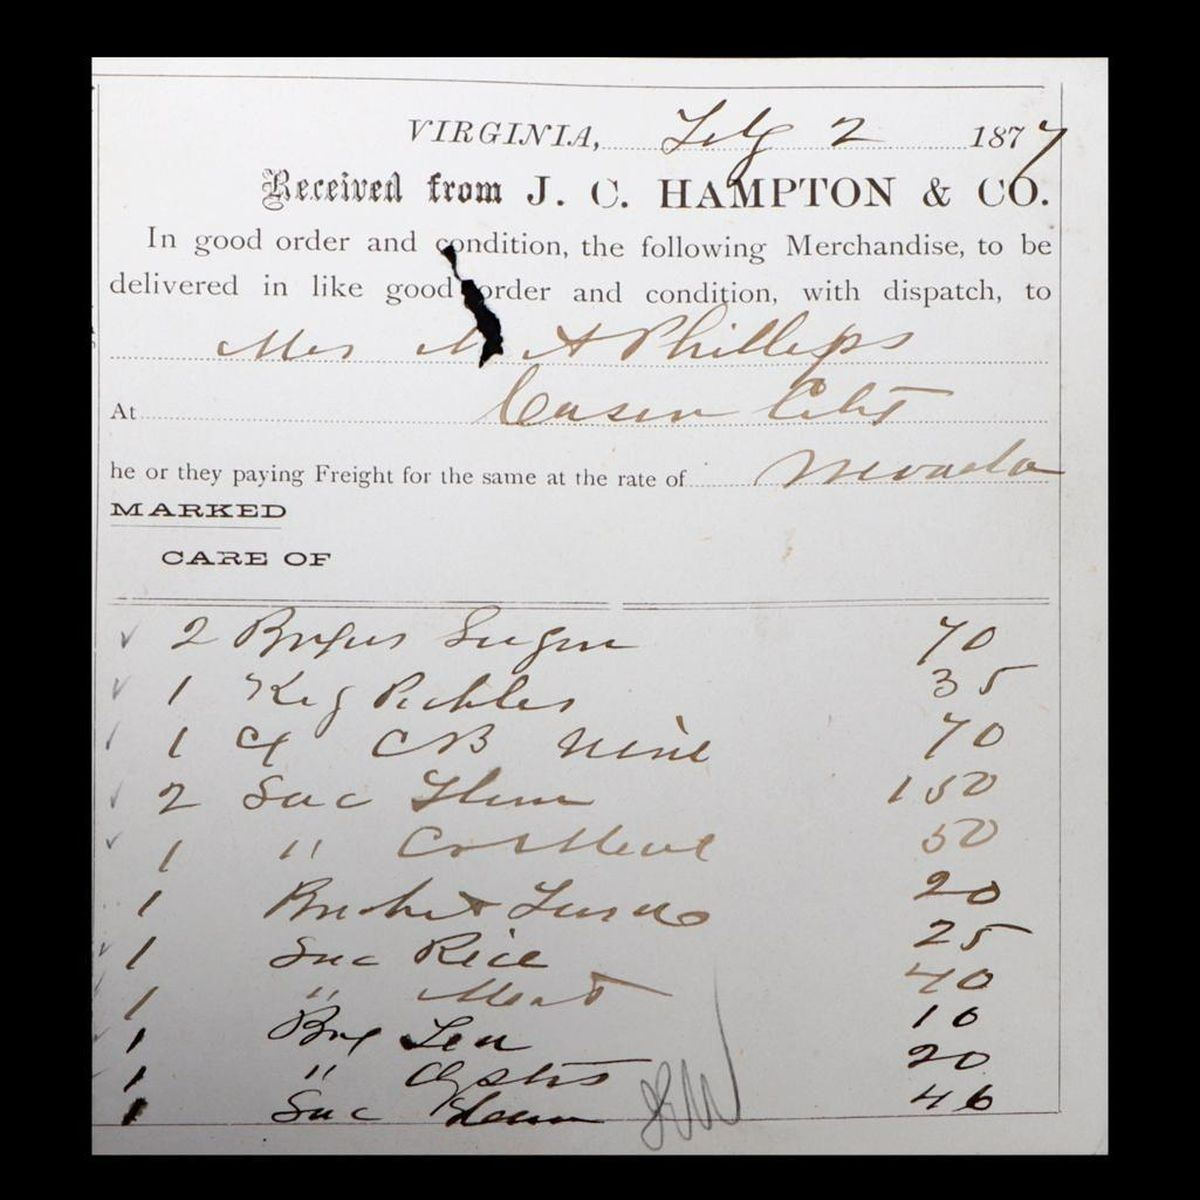 VIRGINIA, July 2 1877
Received from J. C. HAMPTON & CO.
In good order and condition, the following Merchandise, to be
delivered in like good order and condition, with dispatch, to
Mrs A Phillips
At Carson City
he or they paying Freight for the same at the rate of Nevada
MARKED
CARE OF
2 Sugar 70
1 Keg Pickles 35
1 70
2 Sac Flour 150
1 " 50
1 20
1 Sac Rice 25
1 " 40
1 Tea 10
1 " 20
1 Sac 46